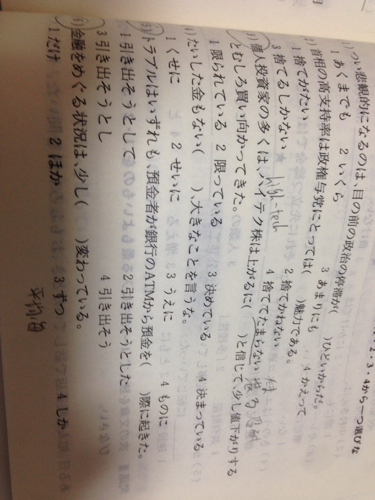 ・2・3・4から一つ選びな
つい悲観的になるのは、目の前の政治の停滞が( )ひどいからだ。
1 あくまでも 2 いくら 3 あまりにも 4 かえって
首相の高支持率は政権与党にとっては( )魅力である。
1 捨てがたい 2 捨てかねない
3 捨てるしかない 4 捨ててたまらない
high-tech
個人投資家の多くは、ハイテク株は上がるに( )と信じて、少し値下がりする
とむしろ買い向かってきた。
1 限られている 2 限っている 3 決めている 4 決まっている
たいした金もない( )、大きなことを言うな。
1 くせに 2 せいに 3 うえに 4 ものに
トラブルはいずれも、預金者が銀行のATMから預金を( )際に起きた。
1 引き出そうとして 2 引き出そうとした
3 引き出そうとし 4 引き出そう
金融をめぐる状況は、少し( )変わっている。
1 だけ 2 ほか 3 ずつ 4 しか